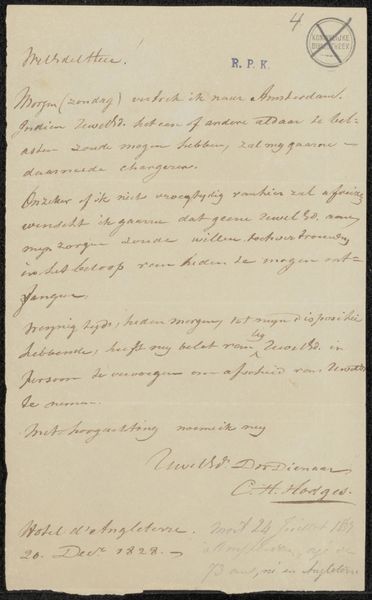 4
KONINKLIJKE BIBLIOTHEEK
R. P. K.
WelEdelHeer!
Morgen (zondag) vertrek ik naar Amsterdam.
Indien UwelEd. het een of andere aldaar te bel-
asten zoude mogen hebben, zal my gaarne
daarmede chargeren.
Onzeker of ik niet vroegtydig van hier zal
wenscht ik gaarne dat geene UwelEd. aan
myn zorgen zoude willen toevertrouwen
in het beloop van heden te mogen ont-
fangen.
Weynig tyds, heden morgen, tot myn dispositie
hebbende, heeft my belet van by UwelEd. in
persoon te vervoegen om afscheid van UwelEd.
te nemen.
Met hoogachting noem ik my
UwelEd. Dr Dienaar
C. H. Hodges.
Hotel d'Angleterre.
20. Decr 1828.
mort 24 Juillet
a Amsterdam, agé de
73 ans, né en Angleterre